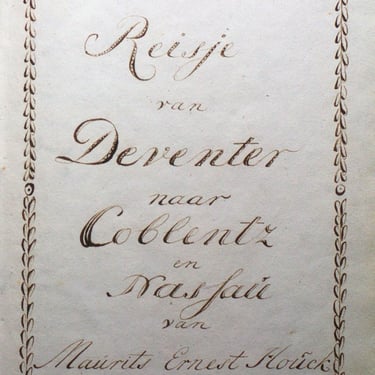 Reisje
van
Deventer
naar
Coblentz
en
Nassaŭ
van
Maŭrits Ernest Hoŭck